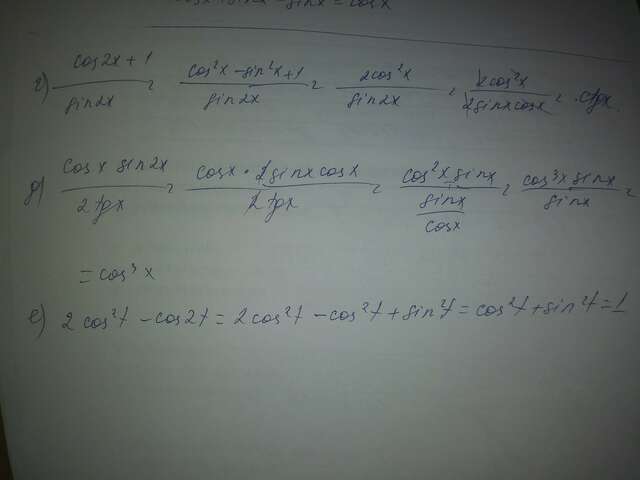 г) (cos2x + 1)/(sin2x) = (cos²x − sin²x + 1)/(sin2x) = (2cos²x)/(sin2x) = (2cos²x)/(2sinxcosx) = ctgx
д) (cosx sin2x)/(2tgx) = (cosx · 2sinxcosx)/(2tgx) = (cos²x sinx)/(sinx/cosx) = (cos³x sinx)/(sinx) =
= cos³x
е) 2cos²t − cos2t = 2cos²t − cos²t + sin²t = cos²t + sin²t = 1